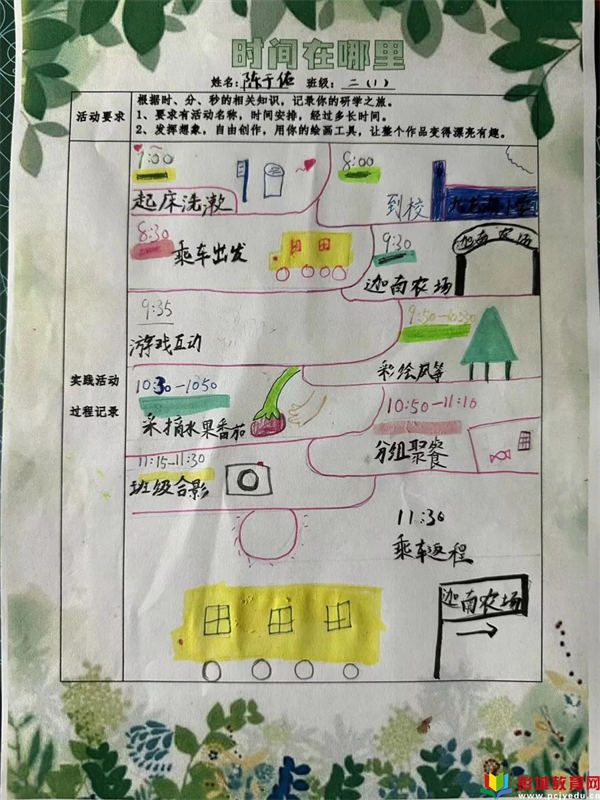 时间在哪里
姓名：陈于佑 班级：二（1）
活动要求
根据时、分、秒的相关知识，记录你的研学之旅。
1、要求有活动名称，时间安排，经过多长时间。
2、发挥想象，自由创作，用你的绘画工具，让整个作品变得漂亮有趣。
实践活动
过程记录
7:00
起床洗漱
8:00
到校
8:30
乘车出发
9:30
迦南农场
迦南农场
9:35
游戏互动
9:50-10:30
彩绘风筝
10:30-1050
采摘水果番茄
10:50-11:10
分组聚餐
11:15-11:30
班级合影
11:30
乘车返程
迦南农场
彭城教育网
www.pcjyedu.cn